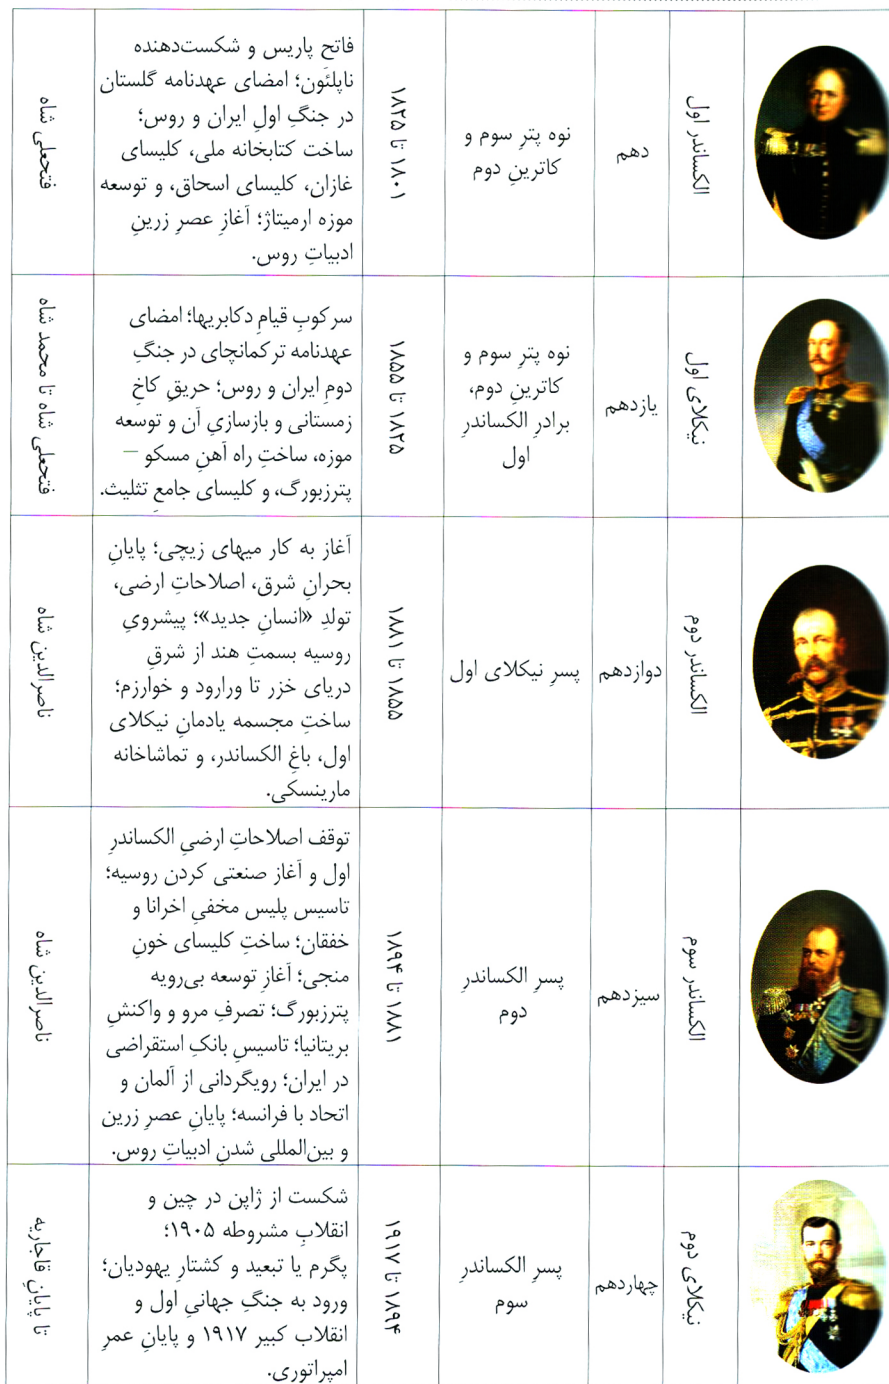 الکساندر اول
دهم
نوه پترِ سوم و
کاترینِ دوم
۱۸۰۱ تا ۱۸۲۵
فاتح پاریس و شکست‌دهنده
ناپلئون؛ امضای عهدنامه گلستان
در جنگِ اولِ ایران و روس؛
ساخت کتابخانه ملی، کلیسای
غازان، کلیسای اسحاق، و توسعه
موزه ارمیتاژ؛ آغازِ عصرِ زرینِ
ادبیاتِ روس.
فتحعلی شاه
نیکلای اول
یازدهم
نوه پترِ سوم و
کاترینِ دوم،
برادرِ الکساندرِ
اول
۱۸۲۵ تا ۱۸۵۵
سرکوبِ قیامِ دکابریها؛ امضای
عهدنامه ترکمانچای در جنگِ
دومِ ایران و روس؛ حریقِ کاخِ
زمستانی و بازسازیِ آن و توسعه
موزه، ساختِ راه آهنِ مسکو –
پترزبورگ، و کلیسای جامعِ تثلیث.
فتحعلی شاه تا محمد شاه
الکساندر دوم
دوازدهم
پسرِ نیکلای اول
۱۸۵۵ تا ۱۸۸۱
آغاز به کار میهای زیچی؛ پایانِ
بحرانِ شرق، اصلاحاتِ ارضی،
تولدِ «انسانِ جدید»؛ پیشرویِ
روسیه بسمتِ هند از شرقِ
دریای خزر تا ورارود و خوارزم؛
ساختِ مجسمه یادمانِ نیکلای
اول، باغِ الکساندر، و تماشاخانه
مارینسکی.
ناصرالدین شاه
الکساندر سوم
سیزدهم
پسرِ الکساندرِ
دوم
۱۸۸۱ تا ۱۸۹۴
توقف اصلاحاتِ ارضیِ الکساندرِ
اول و آغاز صنعتی کردن روسیه؛
تاسیس پلیس مخفیِ اخرانا و
خفقان؛ ساختِ کلیسای خونِ
منجی؛ آغازِ توسعه بی‌رویه
پترزبورگ؛ تصرفِ مرو و واکنشِ
بریتانیا؛ تاسیسِ بانکِ استقراضی
در ایران؛ رویگردانی از آلمان و
اتحاد با فرانسه؛ پایانِ عصرِ زرین
و بین‌المللی شدنِ ادبیاتِ روس.
ناصرالدین شاه
نیکلای دوم
چهاردهم
پسرِ الکساندرِ
سوم
۱۸۹۴ تا ۱۹۱۷
شکست از ژاپن در چین و
انقلابِ مشروطه ۱۹۰۵؛
پگرم یا تبعید و کشتارِ یهودیان؛
ورود به جنگِ جهانیِ اول و
انقلاب کبیر ۱۹۱۷ و پایانِ عمرِ
امپراتوری.
تا پایانِ قاجاریه